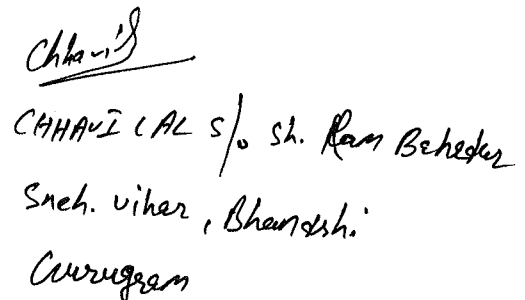 Chhavi
CHHAVI LAL S/o Sh. Ram Behedur
Sneh. vihar, Bhondshi
Gurugram